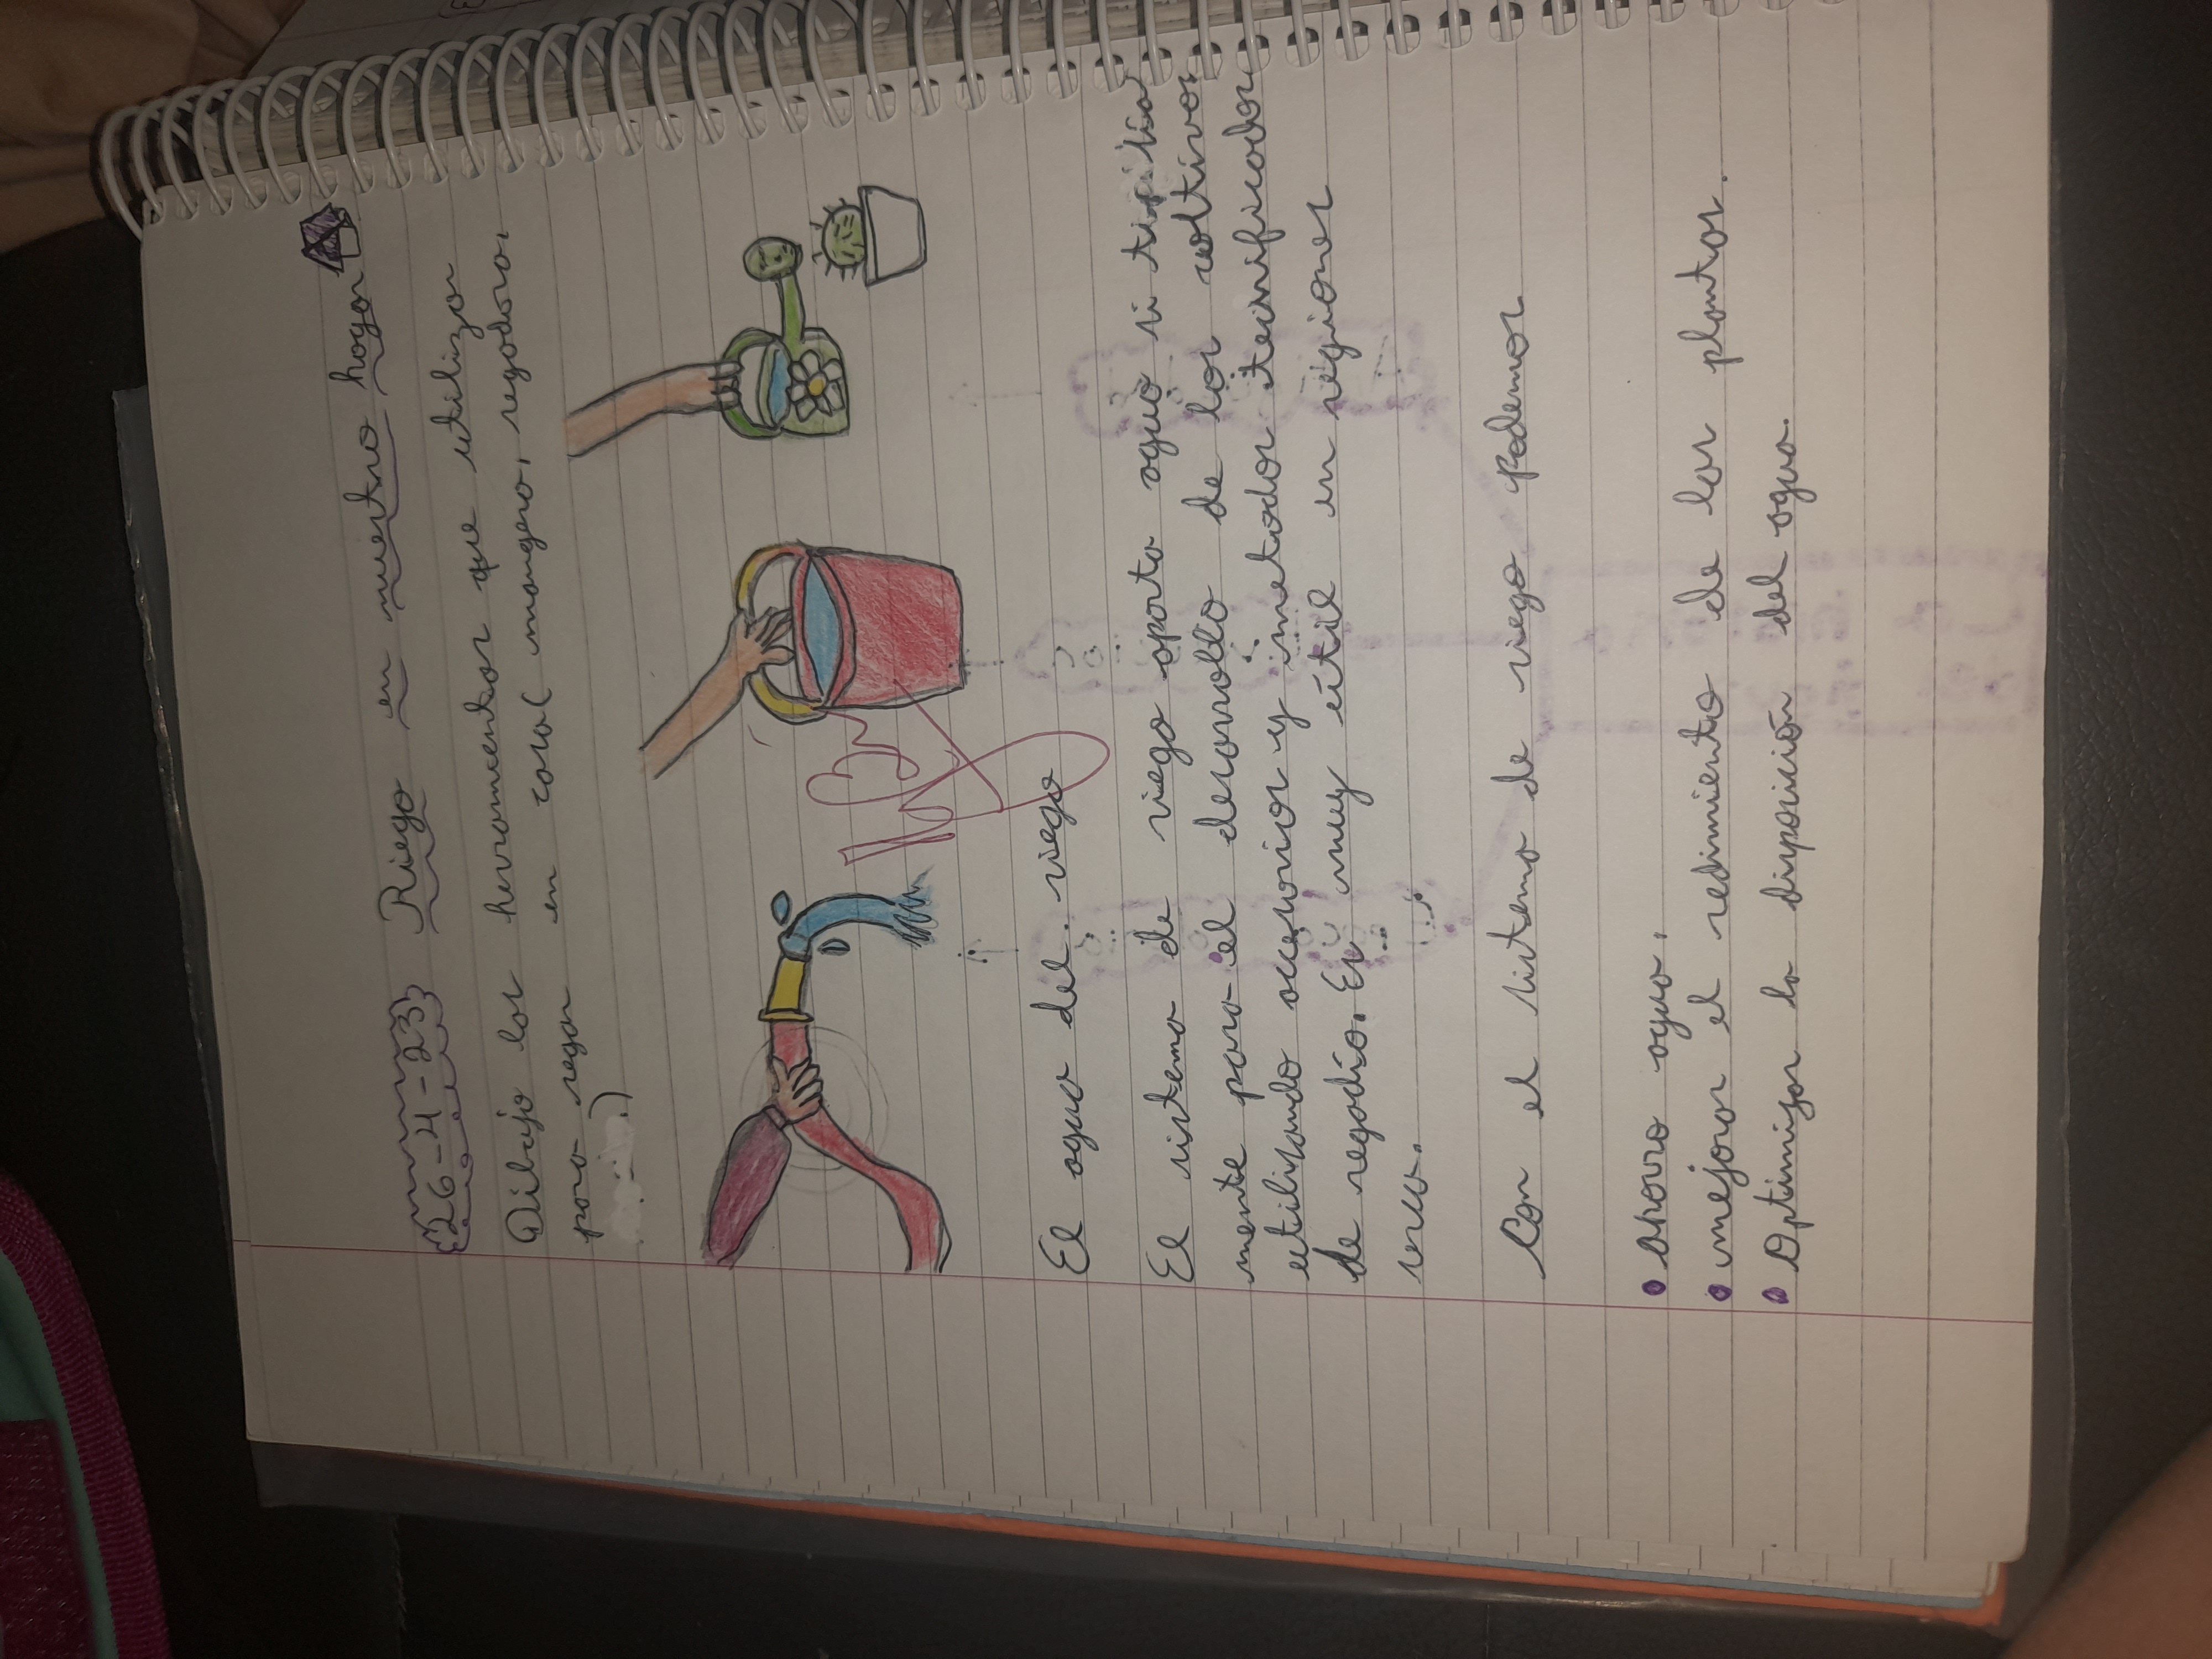 26-4-23 Riego en nuestro hogar
Dibujo las herramientas que utilizan
para regar en casa( mangera, regadora,
)
El agua del riego
El sistema de riego aporta agua si
mente para el desarrollo de los cultivos
utilizando accesorios y metodos tecnificados
de regadío. Es muy útil en regiones
seca.
Con el sistema de riego podemos
• ahorra agua.
• mejorar el redimiento de las plantas.
• Optimizar la disposición del agua.